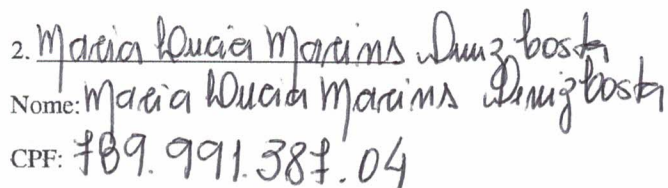 2. Maria Lucia Marins Diniz Costa
Nome: Maria Lucia Marins Diniz Costa
CPF: 789.991.387.04